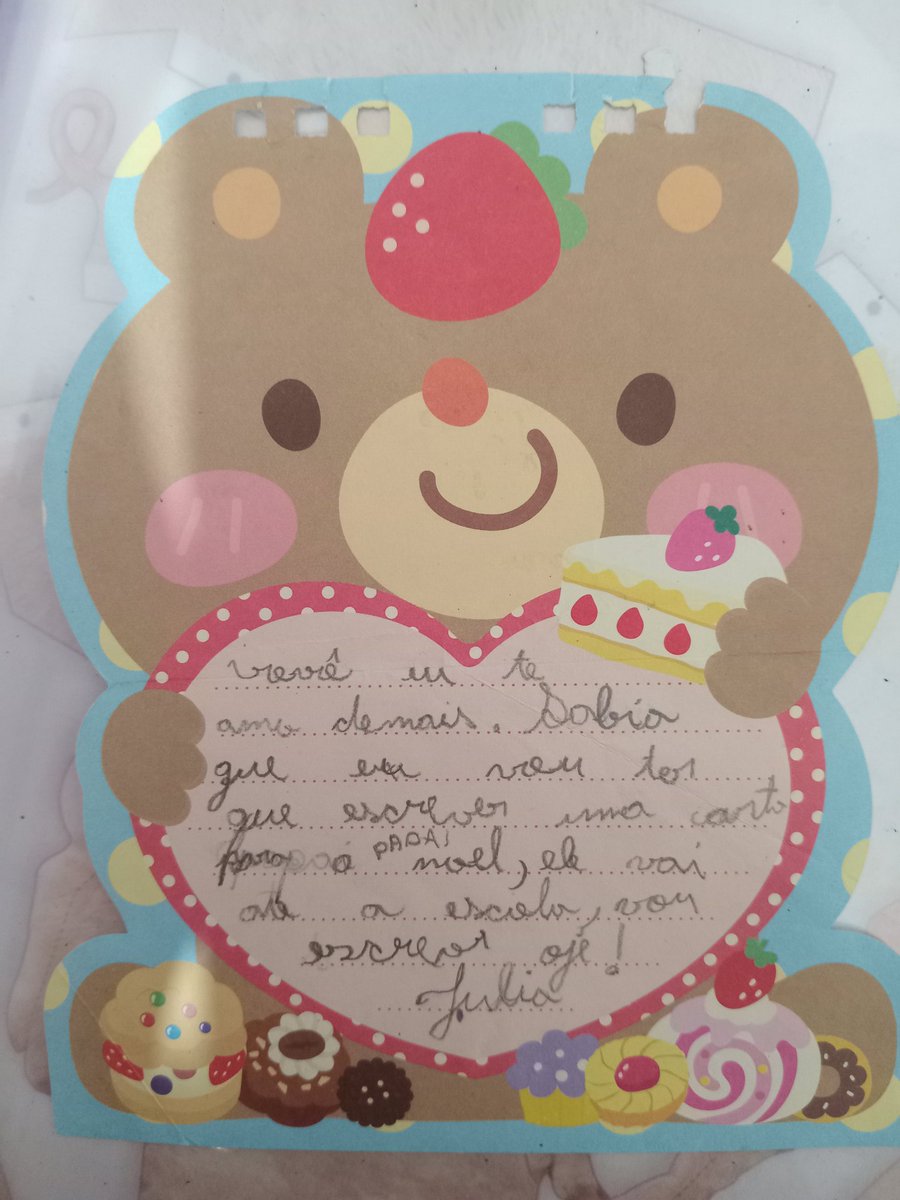 vovô eu te
amo demais. Sabia
que eu vou ter
que escrever uma carta
para o PAPAI noel, ele vai
até a escola, vou
escrever oje!
Julia